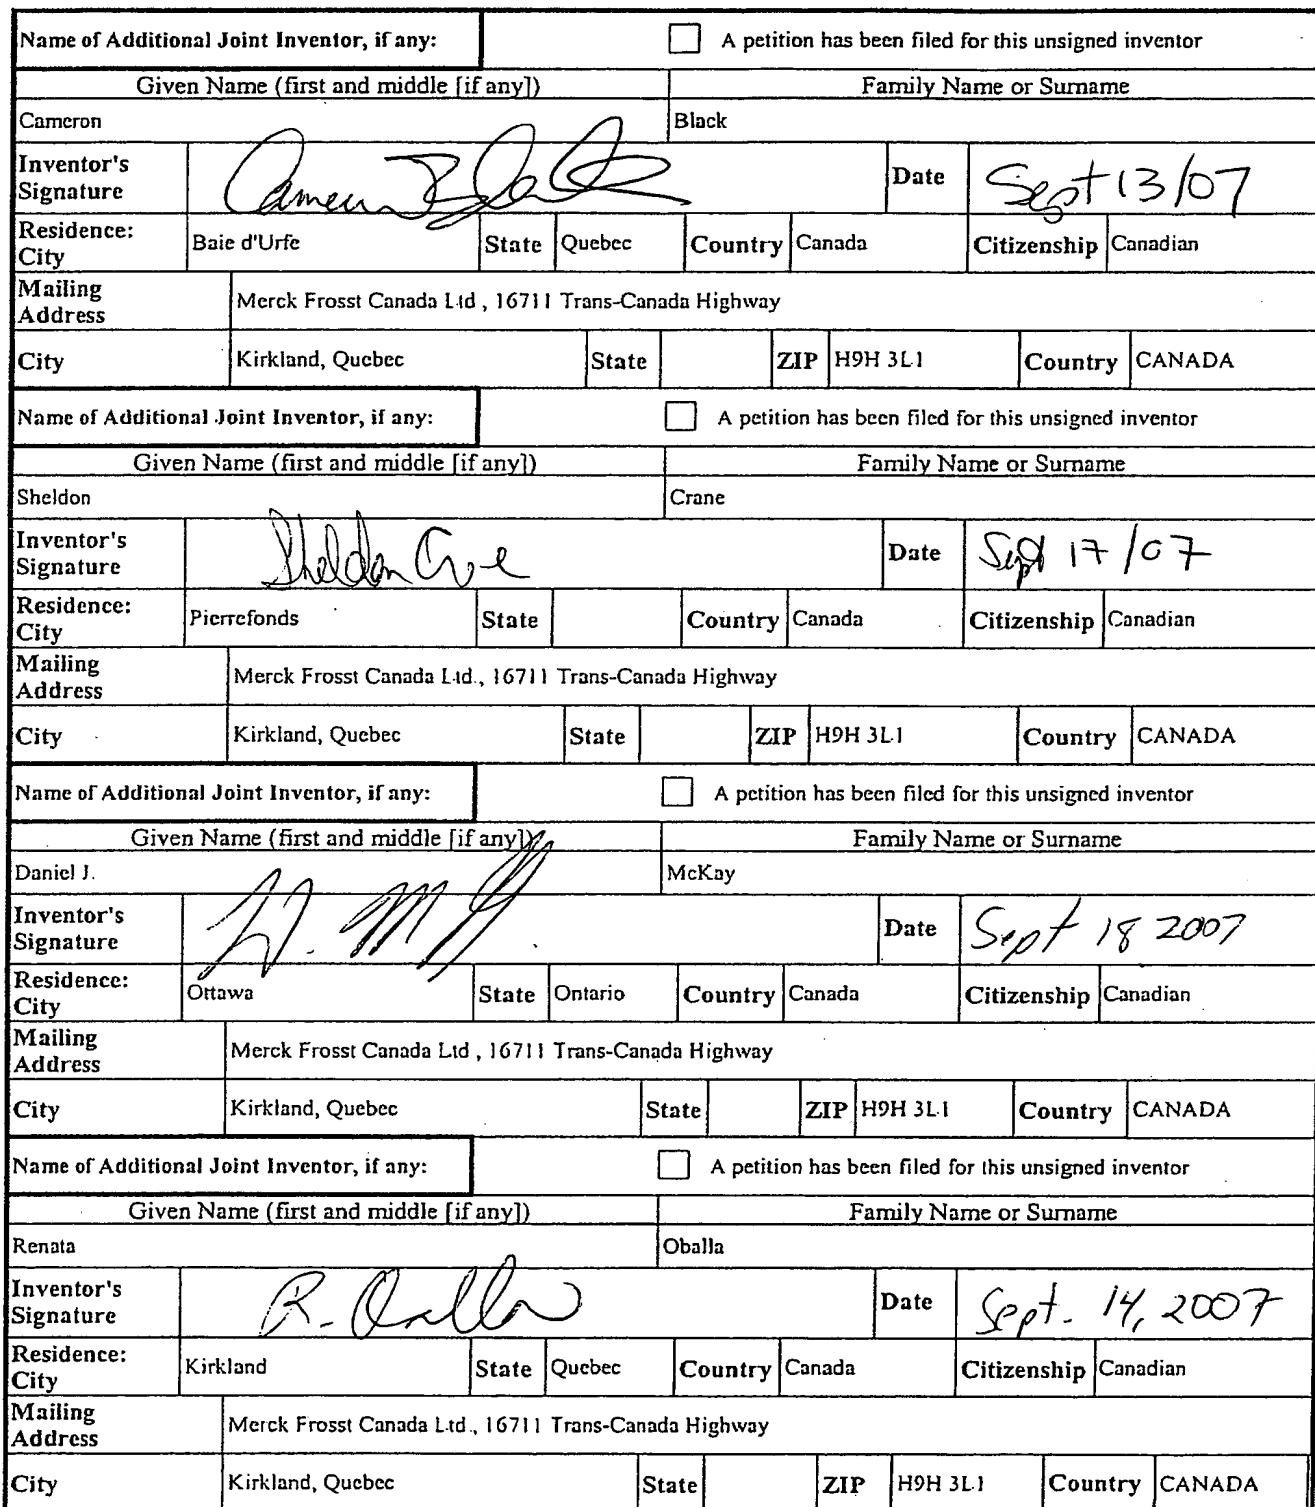 Name of Additional Joint Inventor, if any: A petition has been filed for this unsigned inventor
Given Name (first and middle [if any]) Family Name or Surname
Cameron Black
Inventor's Signature Cameron Black Date Sept 13/07
Residence: City Baie d'Urfe State Quebec Country Canada Citizenship Canadian
Mailing Address Merck Frosst Canada Ltd , 16711 Trans-Canada Highway
City Kirkland, Quebec State ZIP H9H 3L1 Country CANADA
Name of Additional Joint Inventor, if any: A petition has been filed for this unsigned inventor
Given Name (first and middle [if any]) Family Name or Surname
Sheldon Crane
Inventor's Signature Sheldon Crane Date Sept 17/07
Residence: City Pierrefonds State Country Canada Citizenship Canadian
Mailing Address Merck Frosst Canada Ltd., 16711 Trans-Canada Highway
City Kirkland, Quebec State ZIP H9H 3L1 Country CANADA
Name of Additional Joint Inventor, if any: A petition has been filed for this unsigned inventor
Given Name (first and middle [if any]) Family Name or Surname
Daniel J. McKay
Inventor's Signature Date Sept 18 2007
Residence: City Ottawa State Ontario Country Canada Citizenship Canadian
Mailing Address Merck Frosst Canada Ltd , 16711 Trans-Canada Highway
City Kirkland, Quebec State ZIP H9H 3L1 Country CANADA
Name of Additional Joint Inventor, if any: A petition has been filed for this unsigned inventor
Given Name (first and middle [if any]) Family Name or Surname
Renata Oballa
Inventor's Signature R. Oballa Date Sept. 14, 2007
Residence: City Kirkland State Quebec Country Canada Citizenship Canadian
Mailing Address Merck Frosst Canada Ltd., 16711 Trans-Canada Highway
City Kirkland, Quebec State ZIP H9H 3L1 Country CANADA